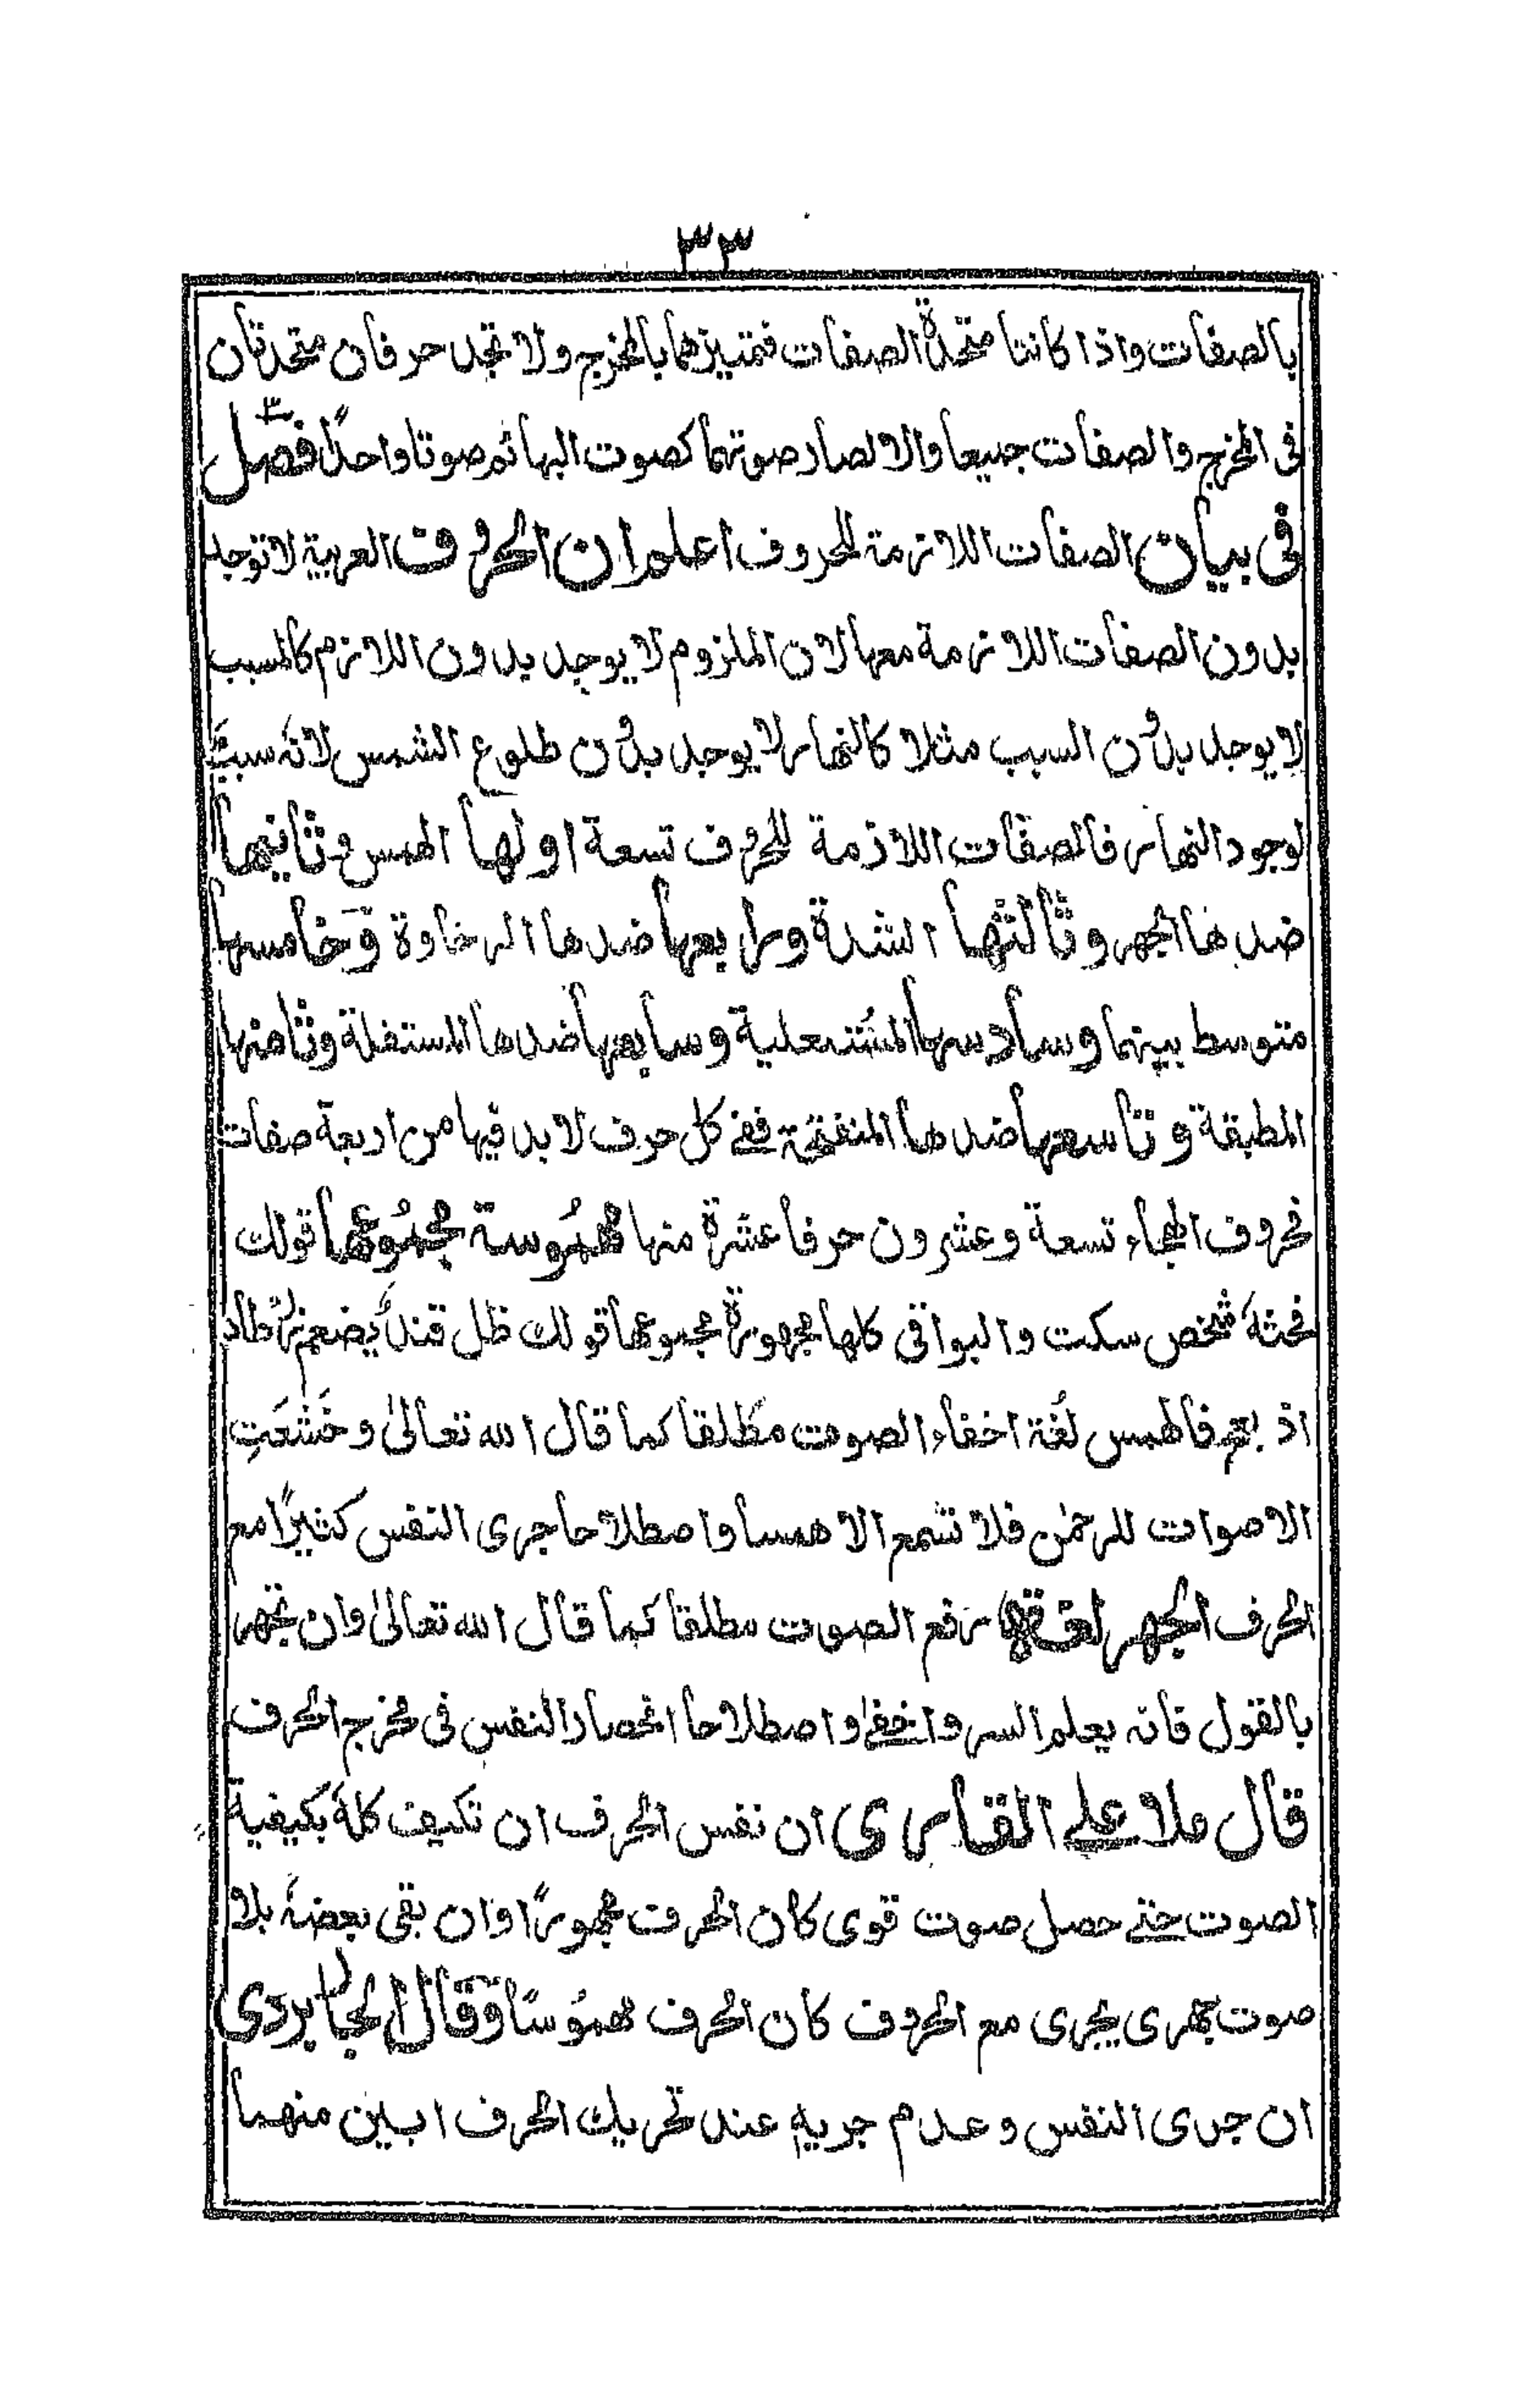 ٣٣
بالصفات واذا كانتا متحدة الصفات فتمتيزهما بالمخرج ولا تجد حرفان متحدتان
فى المخرج والصفات جميعا والا لصار صوتهما كصوت البهائم صوتا واحدًا فصل
فى بيان الصفات اللازمة للحروف اعلم ان الحروف العربية لا توجد
بدون الصفات اللازمة معها لان الملزوم لا يوجد بدون اللازم كالمسبب
لا يوجد بدون السبب مثلا كالنهار لا يوجد بدون طلوع الشمس لانه سبب
لوجود النهار فالصفات اللازمة للحروف تسعة اولها الهمس وثانيها
ضدها الجهر وثالثها الشدة ورابعها ضدها الرخاوة وَخامسها
متوسط بينهما وسادسها المُستعلية وسابعها ضدها المستفلة وثامنها
المطبقة وتاسعها ضدها المنفتحة ففى كل حرف لابد فيها من اربعة صفات
فحروف الهجاء تسعة وعشرون حرفا عشرة منها مهمُوسة مجمُوعها قولك
فحثهٗ شخص سكت والبواقى كلها مجهورة مجموعها قولك ظل قند يضغم زر طاد
اذ بعم فالهمس لُغة اخفاء الصوت مطلقا كما قال الله تعالىٰ وخَشَعَتِ
الاصوات للرحمٰن فلا تسمع الا همسا واصطلاحا جرى النفس كثيرًا مع
الحرف الجهر لغة رفع الصوت مطلقا كما قال الله تعالىٰ وان تجهر
بالقول فانه يعلم السر واخفىٰ واصطلاحا انحصار النفس فى مخرج الحرف
قال ملا على القارى ان نفس الحرف ان تكيف كلهٗ بكيفية
الصوت حتى حصل صوت قوى كان الحرف مجهورًا وان بقى بعضهٗ بلا
صوت جهرى يجرى مع الحروف كان الحرف مهمُوسًا وَقال الجاربردى
ان جرى النفس وعدم جريهٖ عند تحريك الحرف ابين منهما